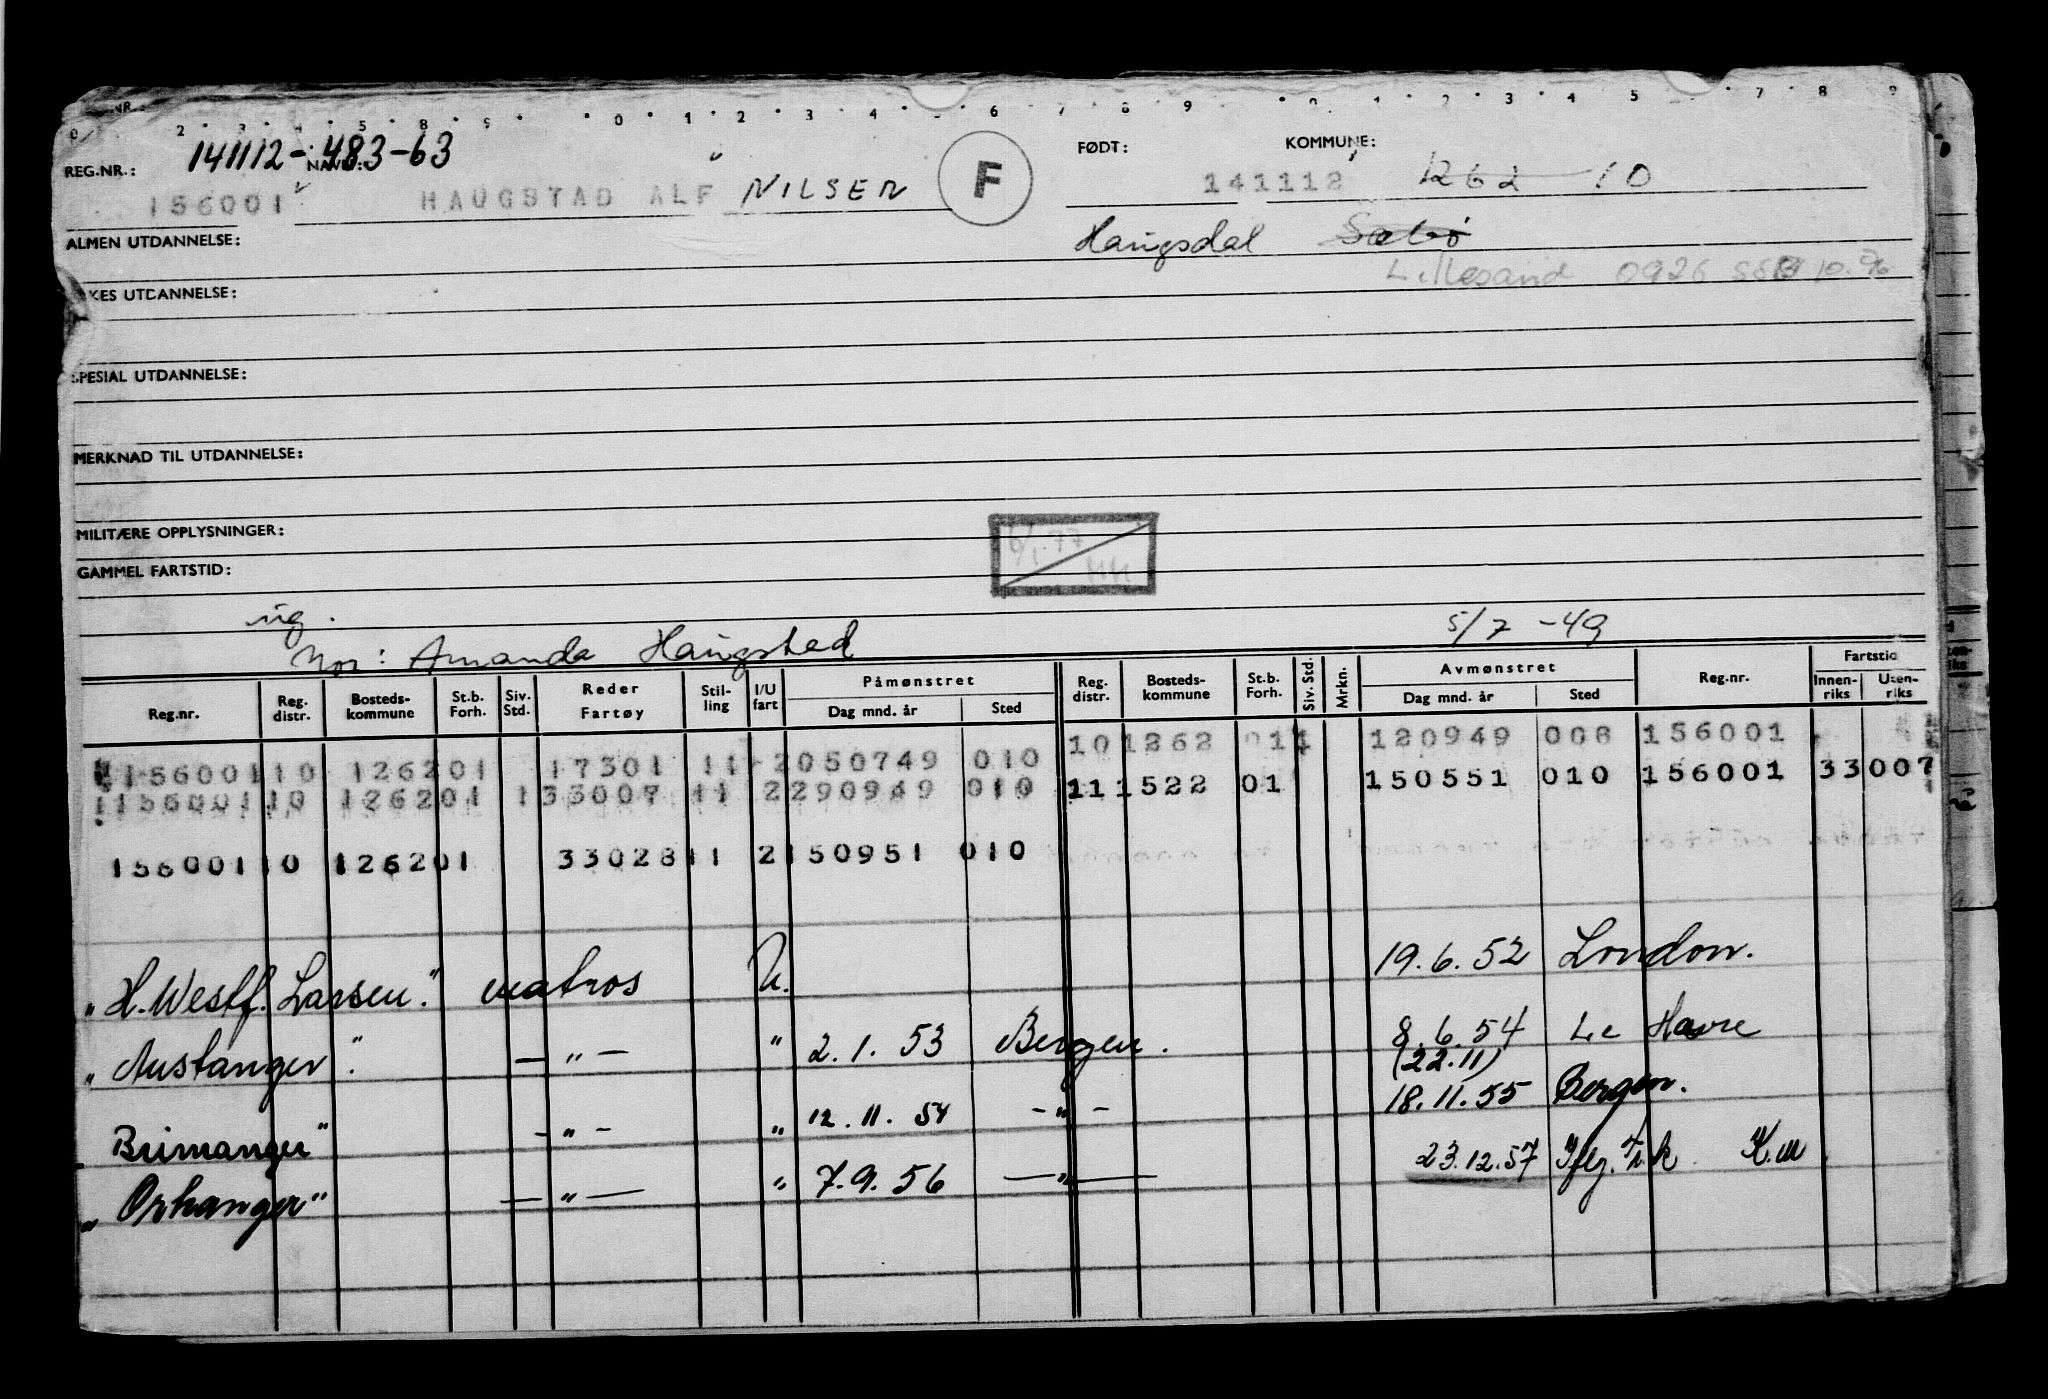 REG.NR.: 141112-483-63 NAVN: FØDT: KOMMUNE:
156001 HAUGSTAD ALF NILSEN F 141112 1262 10
ALMEN UTDANNELSE: Haugsdal Sæbø
Lillesand 0926
KES UTDANNELSE:
SPESIAL UTDANNELSE:
MERKNAD TIL UTDANNELSE:
MILITÆRE OPPLYSNINGER:
6/1-77
GAMMEL FARTSTID:
ug. 5/7-49
Mor: Amanda Haugstad
Reg.nr. Reg. distr. Bosteds-kommune St.b. Forh. Siv. Std. Reder Fartøy Stil-ling I/U fart Påmønstret Dag mnd. år Sted Reg. distr. Bosteds-kommune St.b. Forh. Siv. Std. Mrkn. Avmønstret Dag mnd. år Sted Reg.nr. Fartstid Innen-riks Uten-riks
156001 10 1262 01 17301 11 2 050749 010 10 1262 011 120949 008 156001
156001 10 1262 01 133007 11 2 290949 010 11 1522 01 150551 010 156001 33007
156001 10 1262 01 33028 11 2 150951 010
"H. Westf. Larsen." matros U. 19.6.52 London.
"Austanger". — " — " 2.1.53 Bergen. 8.6.54 Le Havre
(22.11)
Brimanger" — " — " 12.11.54 — " — 18.11.55 Bergen.
"Orkanger" — " — " 7.9.56 — " — 23.12.57